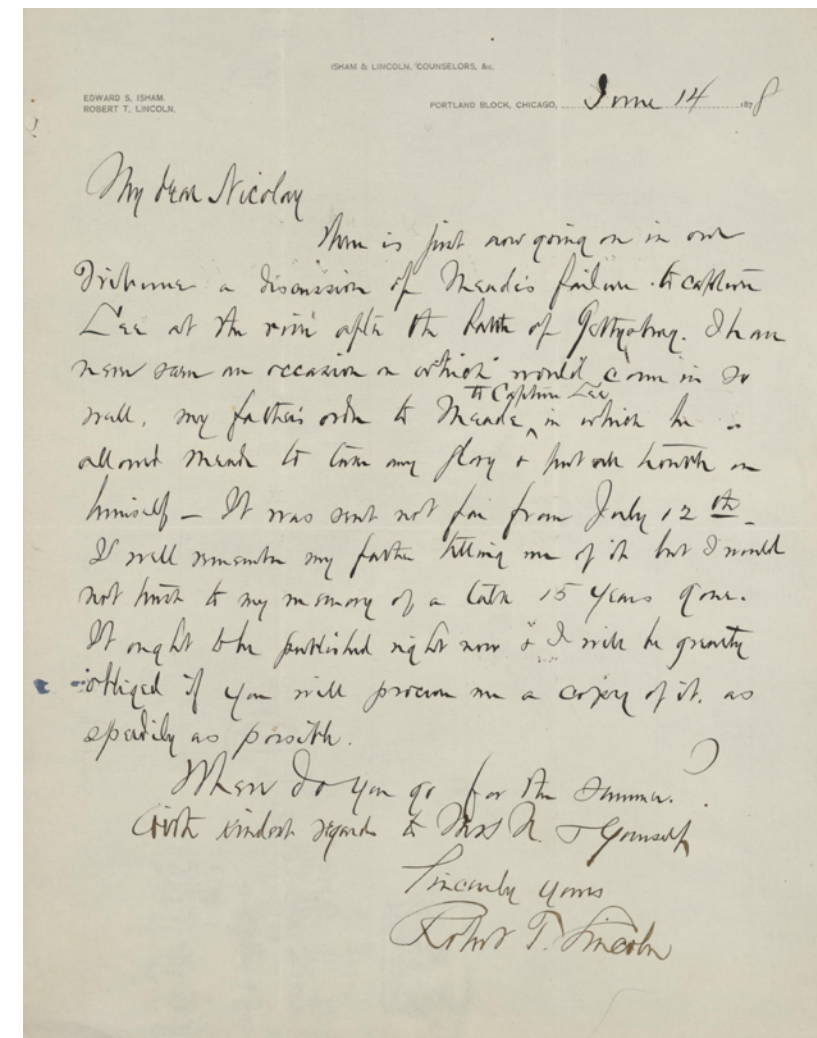 ISHAM & LINCOLN, COUNSELORS, &c.
EDWARD S. ISHAM.
ROBERT T. LINCOLN.
PORTLAND BLOCK, CHICAGO, June 14 1878
My dear Nicolay
There is just now going on in our
Tribune a discussion of Meade's failure to capture
Lee at the river after the battle of Gettysburg. I have
never seen an occasion on which would come in so
well, my father's order to Meade to Capture Lee, in which he
allowed Meade to take any glory & put all trouble on
himself - It was sent not far from July 12th.
I well remember my father telling me of it but I would
not trust to my memory of a talk 15 years gone.
It ought to be published right now & I will be greatly
obliged if you will procure me a copy of it, as
speedily as possible.
Where do you go for the summer?
With kindest regards to Mrs N. & Yourself
Sincerely yours
Robert T. Lincoln